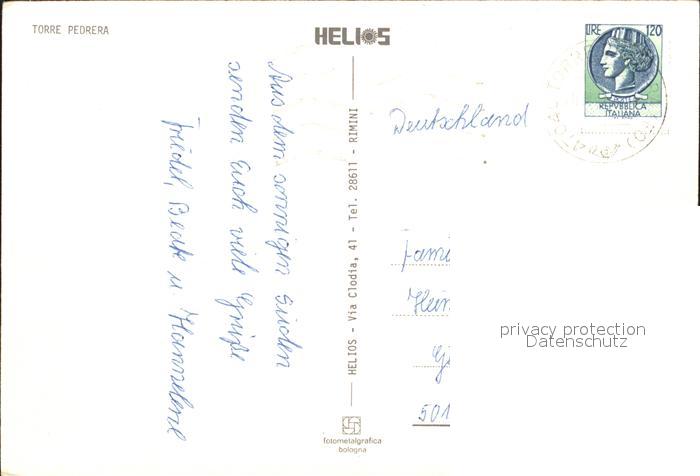 TORRE PEDRERA
HELIOS
LIRE 120
REPVBBLICA
ITALIANA
Aus dem sonnigen Süden
senden Euch viele Grüße
Friedel, Beate u. Hannelene
HELIOS - Via Clodia, 41 - Tel. 28611 - RIMINI
Deutschland
Fami
Hein
501
privacy protection
Datenschutz
fotometalgrafica
bologna